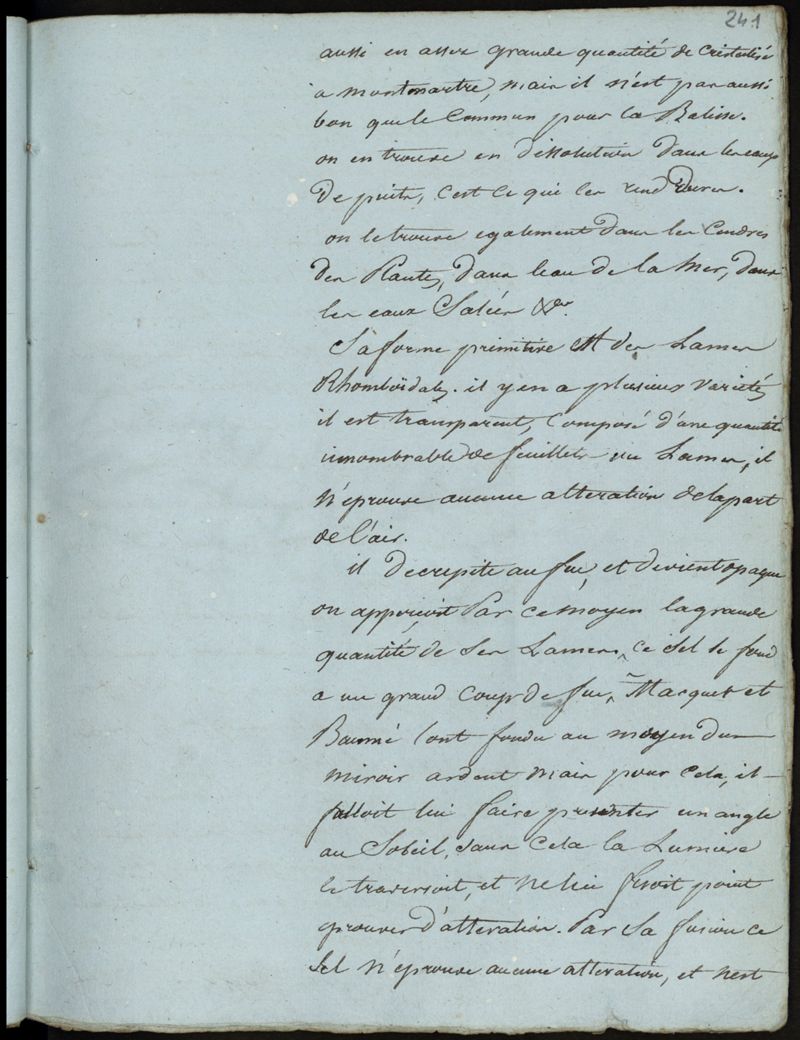 241
aussi en assez grande quantité de Cristalisé
a montmartre, mais il n'est pas aussi
bon que le Commun pour la Batisse.
on en trouve en dissolution dans les eaux
De puits, c'est ce qui les rend Dures.
on le trouve egalement dans les Cendres
des Plantes, dans l'eau de la Mer, dans
les eaux Salées &a.
Sa forme primitive est des Lames
Rhomboïdales. il y en a plusieurs varietés
il est transparent, Composé d'une quantité
innombrable de feuillets ou Lames, il
n'éprouve aucune alteration de la part
de l'air.
il Decrepite au feu, et devient opaque
on apperçoit Par ce moyen la grande
quantité de ses Lames, ce sel se fond
a un grand Coup de feu, Macquer et
Baumé l'ont fondu au moyen d'un
miroir ardent mais pour cela, il
falloit lui faire presenter un angle
au Soleil, sans cela la Lumiere
le traversoit, et ne lui feroit point
eprouver d'alteration. Par sa fusion ce
Sel n'éprouve aucune alteration, et n'est